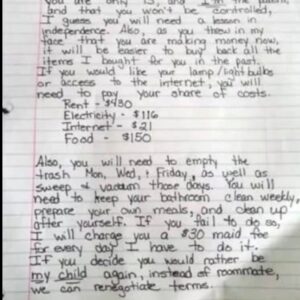 you are only 13, and I'm the parent,
and that you won't be controlled,
I guess you will need a lesson in
independence. Also, as you threw in my
face that you are making money now,
it will be easier to buy back all the
items I bought for you in the past.
If you would like your lamp/light bulbs
or access to the internet, you will
need to pay your share of costs.
Rent - $430
Electricity - $116
Internet - $21
Food - $150
Also, you will need to empty the
trash Mon, Wed, & Friday, as well as
sweep & vacuum those days. You will
need to keep your bathroom clean weekly,
prepare your own meals, and clean up
after yourself. If you fail to do so,
I will charge you a $30 maid fee
for every day I have to do it.
If you decide you would rather be
my child again, instead of roommate,
we can renegotiate terms.